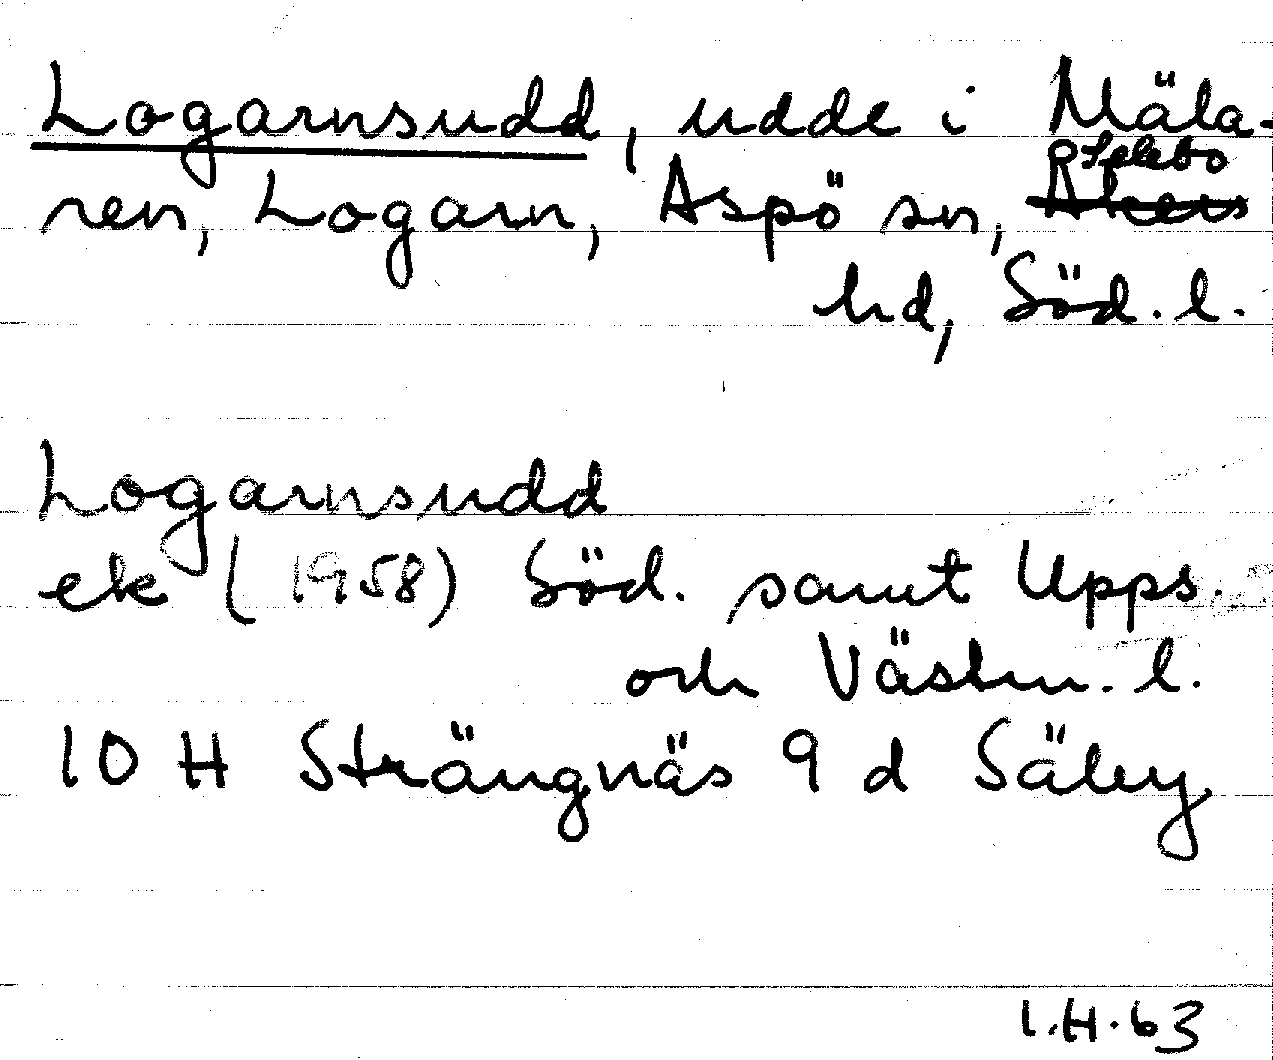 Logarnsudd, udde i Mäla-
ren, Logarn, Aspö sn, Selebo
Åkers
hd, Söd. l.
Logarnsudd
ek (1958) Söd. samt Upps.
och Västm. l.
10 H Strängnäs 9 d Säby
I.H.63